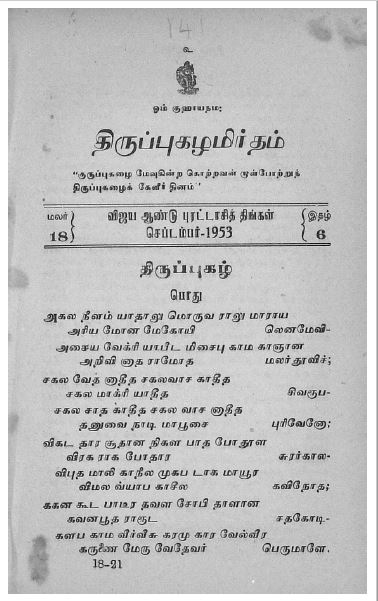 141
உ
ஓம் குஹாயநம:
திருப்புகழமிர்தம்
"குருப்புகழை மேவுகின்ற கொற்றவன் முன்போற்றுந்
திருப்புகழைக் கேளீர் தினம்"
மலர் 18 விஜய ஆண்டு புரட்டாசித் திங்கள் இதழ் 6
செப்டம்பர்-1953
திருப்புகழ்
பொது
அகல நீளம் யாதாலு மொருவ ராலு மாராய
அரிய மோன மேகோயி லெனமேவி-
அசைய வேக்ரி யாபீட மிசைபு காம காஞான
அறிவி னாத ராமோத மலர்தூவிச்;
சகல வேத னாதீத சகலவாச காதீத
சகல மாக்ரி யாதீத சிவரூப-
சகல சாத காதீத சகல வாச னாதீத
தனுவை நாடி மாபூசை புரிவேனோ;
விகட தார சூதான நிகள பாத போதூள
விரக ராக போதார சுரர்கால-
விபுத மாலி காநீல முகப டாக மாயூர
விமல வ்யாப காசீல கவிநோத;
ககன கூட பாடீர தவள சோபி தாளான
கவனபூத ராரூட சதகோடி-
களப காம வீர்வீசு கரமு கார வேல்வீர
கருணை மேரு வேதேவர் பெருமாளே.
18-21